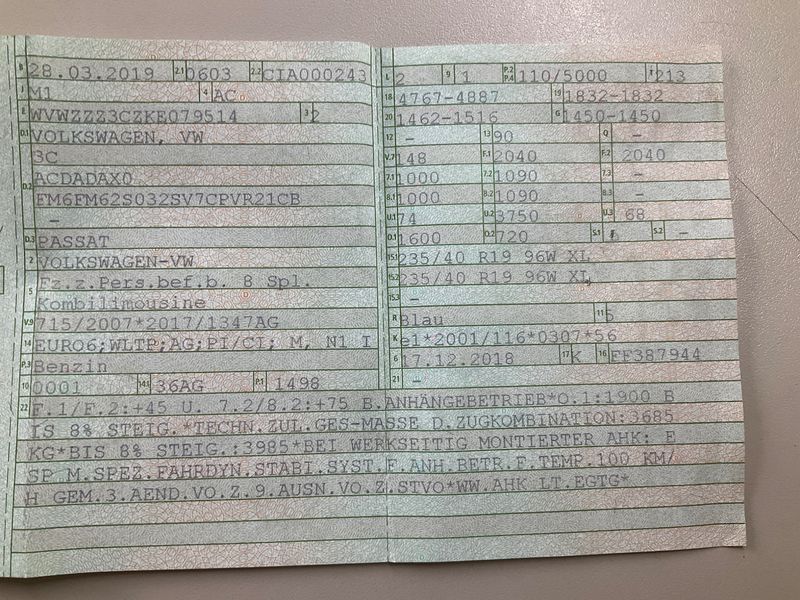 B 28.03.2019 2.1 0603 2.2 CIA000243
J M1 4 AC
E WVWZZZ3CZKE079514 3 2
D.1 VOLKSWAGEN, VW
3C
D.2 ACDADAX0
FM6FM62S032SV7CPVR21CB
–
D.3 PASSAT
2 VOLKSWAGEN-VW
5 Fz.z.Pers.bef.b. 8 Spl.
Kombilimousine
V.9 715/2007*2017/1347AG
14 EURO6;WLTP;AG;PI/CI; M, N1 I
P.3 Benzin
10 0001 14.1 36AG P.1 1498
L 2 9 1 P.2 P.4 110/5000 T 213
18 4767-4887 19 1832-1832
20 1462-1516 G 1450-1450
12 – 13 90 Q –
V.7 148 F.1 2040 F.2 2040
7.1 1000 7.2 1090 7.3 –
8.1 1000 8.2 1090 8.3 –
U.1 74 U.2 3750 U.3 68
O.1 1600 O.2 720 S.1 S.2 –
15.1 235/40 R19 96W XL
15.2 235/40 R19 96W XL
15.3 –
R Blau 11 5
K e1*2001/116*0307*56
6 17.12.2018 17 K 16 FF387944
21 –
22 F.1/F.2:+45 U. 7.2/8.2:+75 B.ANHÄNGEBETRIEB*O.1:1900 B
IS 8% STEIG.*TECHN.ZUL.GES-MASSE D.ZUGKOMBINATION:3685
KG*BIS 8% STEIG.:3985*BEI WERKSEITIG MONTIERTER AHK: E
SP M.SPEZ.FAHRDYN.STABI.SYST.F.ANH.BETR.F.TEMP.100 KM/
H GEM.3.AEND.VO.Z.9.AUSN.VO.Z.STVO*WW.AHK LT.EGTG*